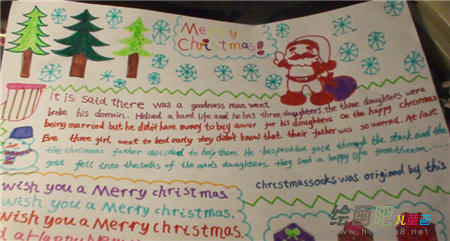 Merry
Christmas!
It is said there was a goodness man went
broke his domain. Helived a hard life and he has three daughters. the three daughters were
being married but he didnt have money to buy dower for his daughters on the happy christmas
Eve three girl went to bed early they didn't know that their father was so worread. At last
the christmas father decided to help them. He besprinkled gold through the stark and the
gold fell into thesocks of the maid's daughters. they lived a happy life from then on.....
christmassocks was origined by this
wish you a Merry christmas
wish you a Merry christmas.
wish you a Merry christmas
d a Happy New
绘画吧儿童画
www.huihua8.net